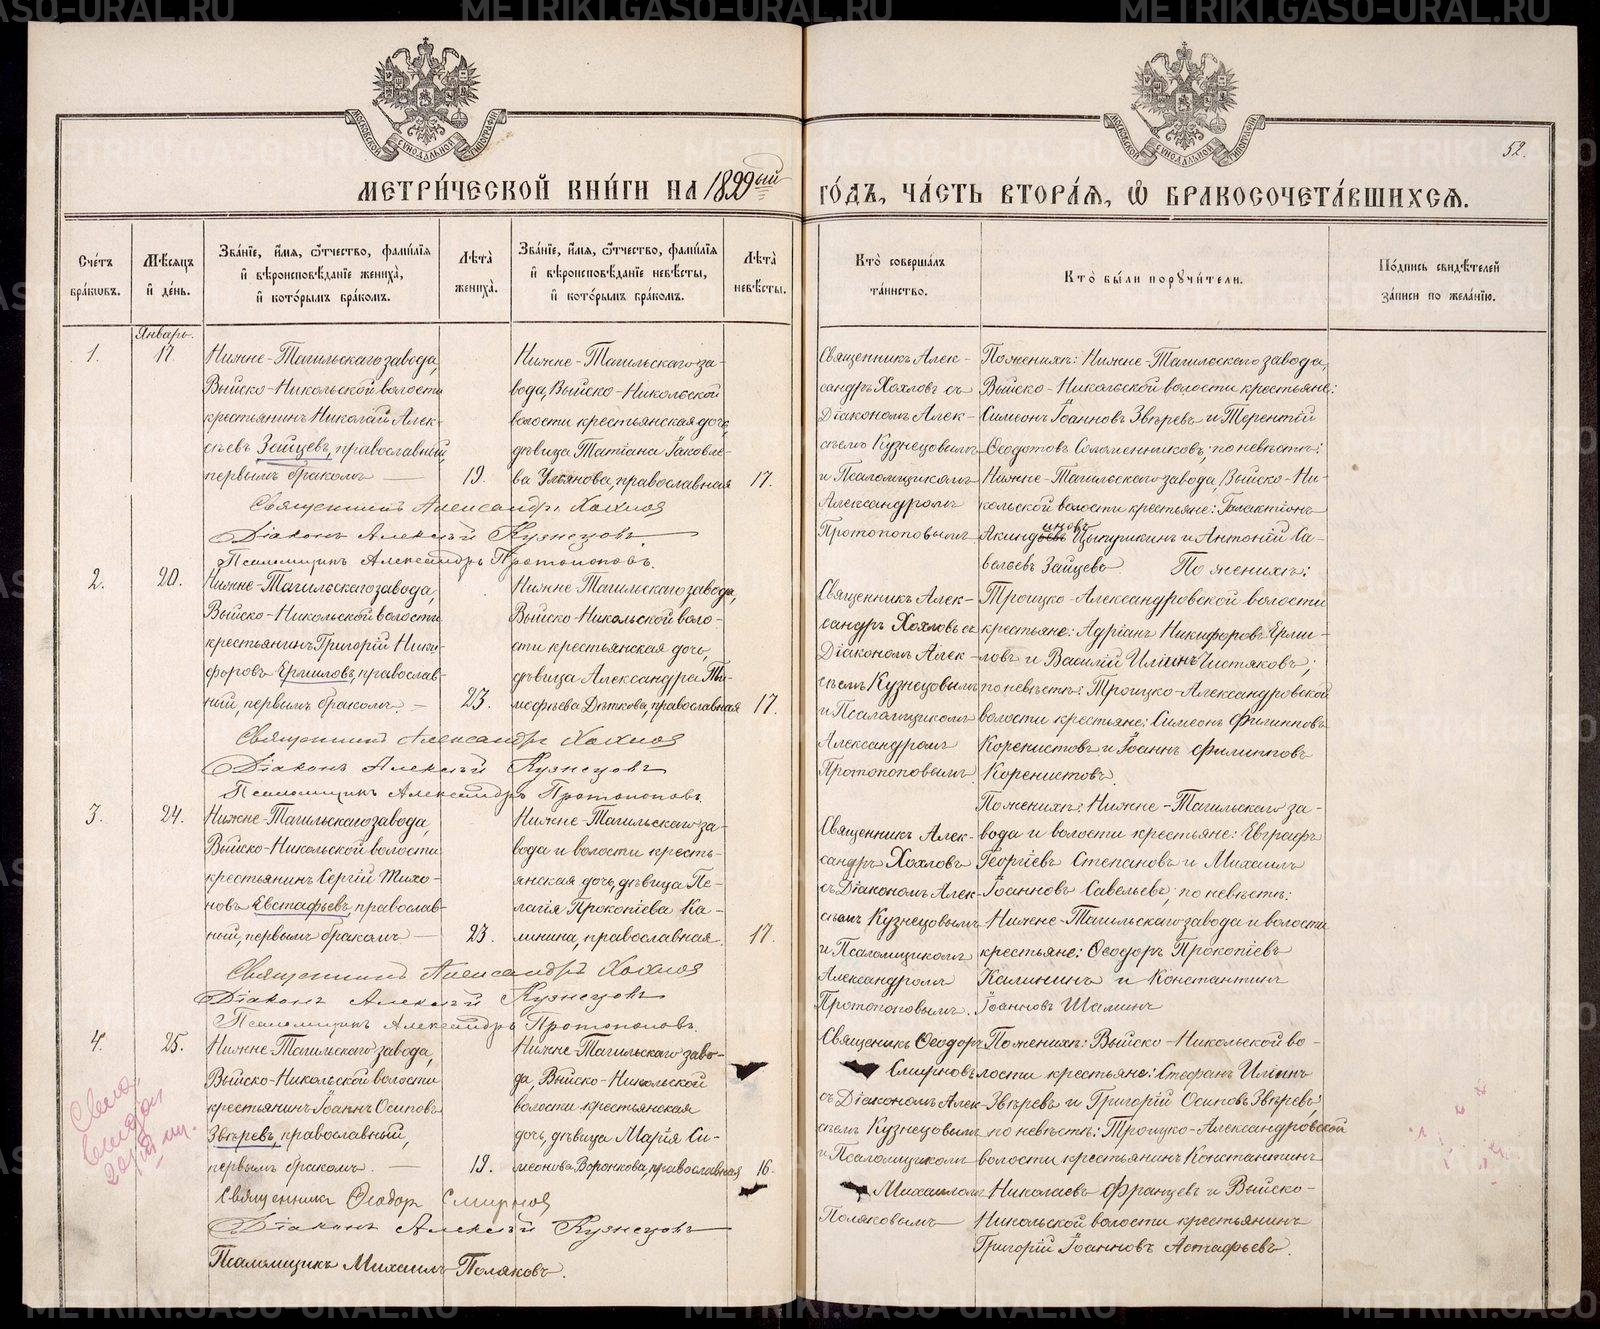 МЕТРИ́ЧЕСКОЙ КНИ́ГИ НА 1899ый ГО́ДЪ, ЧА́СТЬ ВТОРА́Я, Ѡ БРАКОСОЧЕТА́ВШИХСЯ.
52.
Сче́тъ бра́кѡвъ.
Мѣ́сяцъ и҆ де́нь.
Зва́нїе, и҆́мя, ѻ҆́тчество, фами́лїя и҆ вѣроисповѣ́данїе жениха̀, и҆ кото́рымъ бра́комъ.
Лѣ́та жениха̀.
Зва́нїе, и҆́мя, ѻ҆́тчество, фами́лїя и҆ вѣроисповѣ́данїе невѣ́сты, и҆ кото́рымъ бра́комъ.
Лѣ́та невѣ́сты.
Кто̀ соверша́лъ та́инство.
Кто̀ бы́ли порꙋчи́тели.
По́дпись свидѣ́телей за́писи по жела́нїю.
Январь.
1.
17
Нижне-Тагильскаго завода,
Выйско-Никольской волости
крестьянинъ Николай Алек-
сѣевъ Зайцевъ, православный,
первымъ бракомъ
19.
Нижне-Тагильскаго за-
вода, Выйско-Никольской
волости крестьянская дочь,
дѣвица Татіана Іаковле-
ва Ульянова, православная
17.
Священникъ Алек-
сандръ Хохловъ съ
Діакономъ Алек-
сѣемъ Кузнецовымъ
и Псаломщикомъ
Александромъ
Протопоповымъ
По женихѣ: Нижне-Тагильскаго завода,
Выйско-Никольской волости крестьяне:
Симеонъ Іоанновъ Звѣревъ и Терентій
Ѳеодотовъ Соломенниковъ; по невѣстѣ:
Нижне-Тагильскаго завода, Выйско-Ни-
кольской волости крестьяне: Галактіонъ
Акиндиновъ Цыпушкинъ и Антоній Са-
вельевъ Зайцевъ
Священникъ Александръ Хохловъ
Діаконъ Алексѣй Кузнецовъ
Псаломщикъ Александръ Протопоповъ.
2.
20.
Нижне-Тагильскаго завода,
Выйско-Никольской волости
крестьянинъ Григорій Ники-
форовъ Ермиловъ, православ-
ный, первымъ бракомъ.
23.
Нижне-Тагильскаго завода,
Выйско-Никольской воло-
сти крестьянская дочь,
дѣвица Александра Ти-
мофѣева Дѣткова, православная
17.
Священникъ Алек-
сандръ Хохловъ съ
Діакономъ Алек-
сѣемъ Кузнецовымъ
и Псаломщикомъ
Александромъ
Протопоповымъ
По женихѣ:
Троицко-Александровской волости
крестьяне: Адріанъ Никифоровъ Ерми-
ловъ и Василій Иліинъ Чистяковъ;
по невѣстѣ: Троицко-Александровской
волости крестьяне: Симеонъ Филипповъ
Коренистовъ и Іоаннъ Филипповъ
Коренистовъ
Священникъ Александръ Хохловъ
Діаконъ Алексѣй Кузнецовъ
Псаломщикъ Александръ Протопоповъ.
3.
24.
Нижне-Тагильскаго завода,
Выйско-Никольской волости
крестьянинъ Сергій Тихо-
новъ Евстафьевъ, православ-
ный, первымъ бракомъ
23.
Нижне-Тагильскаго за-
вода и волости кресть-
янская дочь, дѣвица Пе-
лагія Прокопіева Ка-
линина, православная.
17.
Священникъ Алек-
сандръ Хохловъ
съ Діакономъ Алек-
сѣемъ Кузнецовымъ
и Псаломщикомъ
Александромъ
Протопоповымъ.
По женихѣ: Нижне-Тагильскаго за-
вода и волости крестьяне: Евграфъ
Георгіевъ Степановъ и Михаилъ
Іоанновъ Савельевъ; по невѣстѣ:
Нижне-Тагильскаго завода и волости
крестьяне: Ѳеодоръ Прокопіевъ
Калининъ и Константинъ
Іоанновъ Шаминъ
Священникъ Александръ Хохловъ
Діаконъ Алексѣй Кузнецовъ
Псаломщикъ Александръ Протопоповъ.
4.
25.
Нижне-Тагильскаго завода,
Выйско-Никольской волости
крестьянинъ Іоаннъ Осиповъ
Звѣревъ, православный,
первымъ бракомъ.
19.
Нижне-Тагильскаго заво-
да, Выйско-Никольской
волости крестьянская
дочь, дѣвица Марія Си-
меонова Воронкова, православная
16.
Священикъ Ѳеодоръ
Смирновъ
съ Діакономъ Алек-
сѣемъ Кузнецовымъ
и Псаломщикомъ
Михаиломъ
Поляковымъ
По женихѣ: Выйско-Никольской во-
лости крестьяне: Стефанъ Иліинъ
Звѣревъ и Григорій Осиповъ Звѣревъ;
по невѣстѣ: Троицко-Александровской
волости крестьянинъ Константинъ
Николаевъ Францевъ и Выйско-
Никольской волости крестьянинъ
Григорій Іоанновъ Астафьевъ.
Священникъ Ѳеодоръ Смирновъ
Діаконъ Алексѣй Кузнецовъ
Псаломщикъ Михаилъ Поляковъ.
METRIKI.GASO-URAL.RU